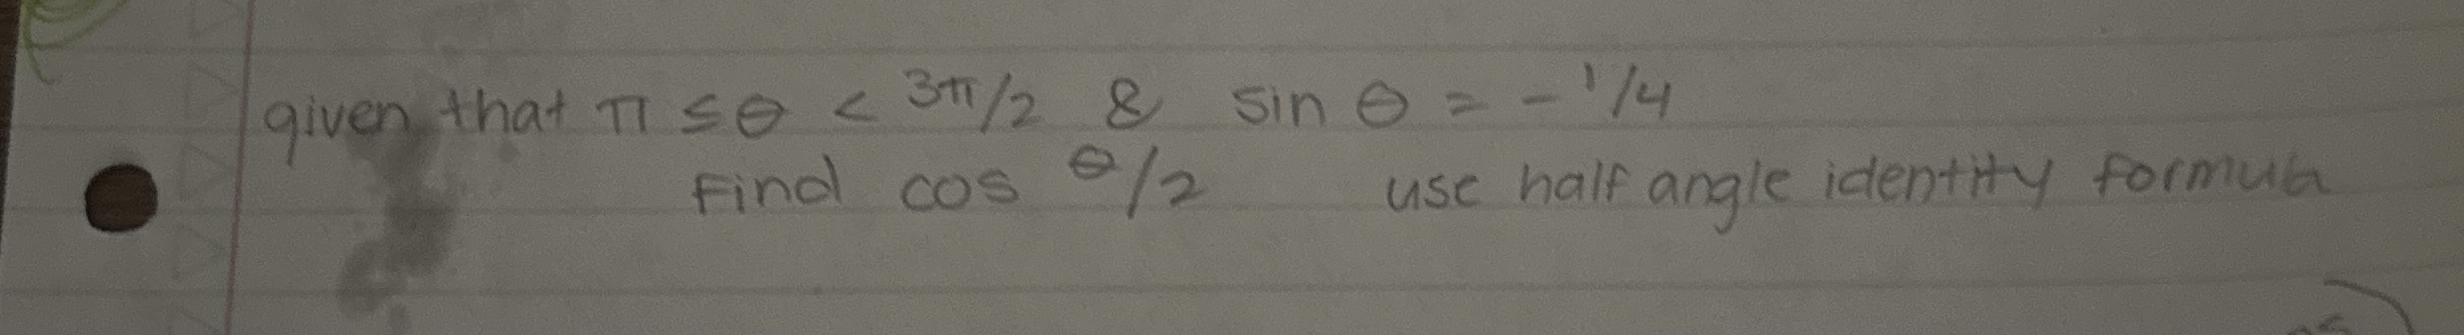 given that π ≤ θ < 3π/2 & sin θ = - 1/4
Find cos θ/2 use half angle identity formula